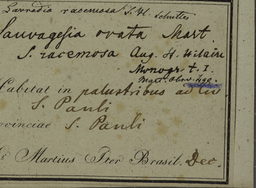 Lavradia racemosa St. H. schultes
Sauvagesia ovata Mart.
S. racemosa Aug. St. Hilaire
Monogr. t. 1.
Habitat in palustribus ad
S. Pauli
Provinciae S. Pauli
Martius Iter Brasil. Dec.